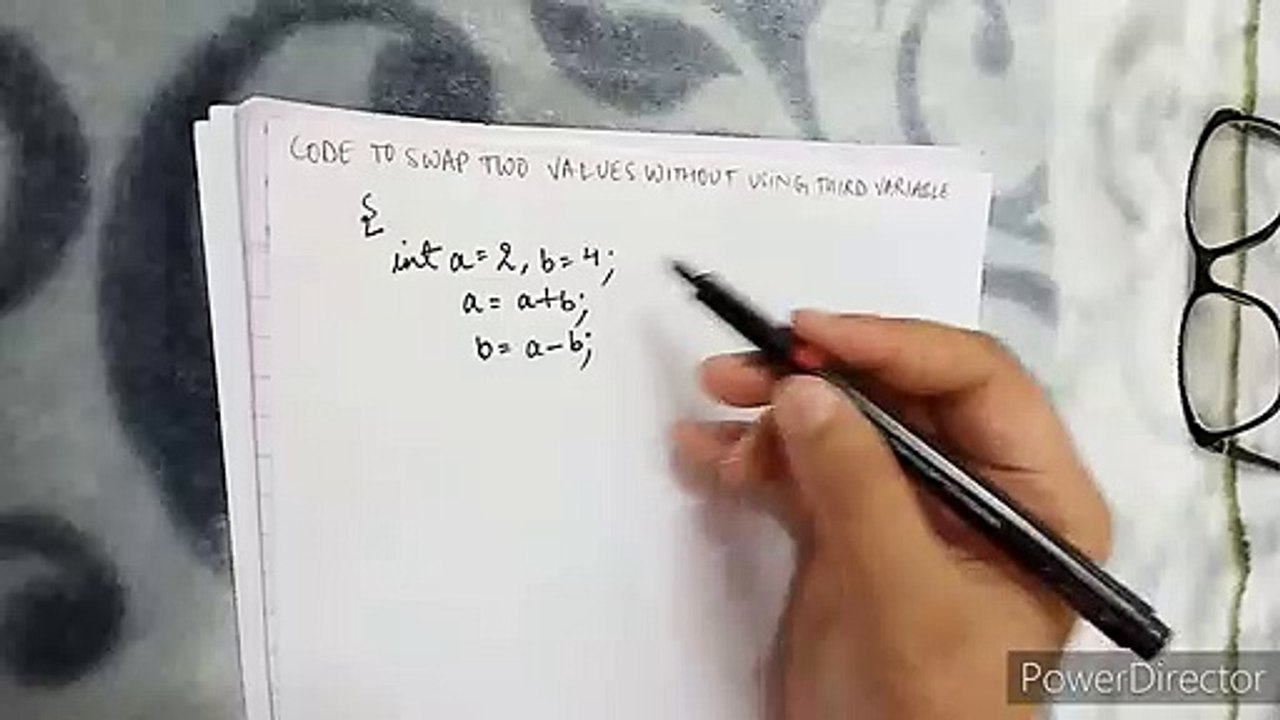 CODE TO SWAP TWO VALUES WITHOUT USING THIRD VARIABLE
{
int a=2, b=4;
a= a+b;
b= a-b;
PowerDirector